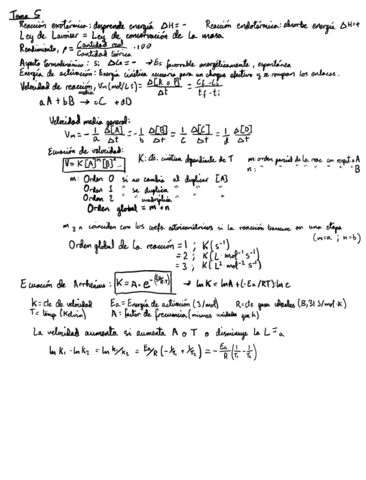 Tema 5
Reacción exotérmica: desprende energía ΔH = -     Reacción endotérmica: absorbe energía ΔH = +
Ley de Lavoisier = Ley de conservación de la masa
Rendimiento, ρ = Cantidad real / Cantidad teórica · 100
termodinámico: si ΔG = - → Es favorable energéticamente, espontánea
Energía de activación: Energía cinética necesaria para un choque efectivo y se rompan los enlaces.
Velocidad de reacción, Vm (mol/L·s) = Δ[A o P] / Δt = Cf - Ci / tf - ti
media
aA + bB → cC + dD
Velocidad media general:
Vm = -1/a Δ[A]/Δt = -1/b Δ[B]/Δt = 1/c Δ[C]/Δt = 1/d Δ[D]/Δt
Ecuación de velocidad:
V = K [A]^m [B]^n     K: cte. cinética dependiente de T     m: orden parcial de la reac con respt. a A
n: " " " " " B
m: Orden 0 si no cambia al duplicar [A]
Orden 1 " se duplica " " "
Orden 2 " cuadruplica " " "
Orden global = m + n
m y n coinciden con los coefs. estequiométricos si la reacción transcurre en una etapa
(m = a ; n = b)
Orden global de la reacción = 1 ; K (s⁻¹)
= 2 ; K (L · mol⁻¹ s⁻¹)
= 3 ; K (L² mol⁻² s⁻¹)
Ecuación de Arrhenius: K = A · e^-(Ea/R·T) → ln K = ln A + (-Ea/RT) · ln e
K = cte de velocidad     Ea = Energía de activación (J/mol)     R = cte gases ideales (8,31 J/mol·K)
T = temp (Kelvin)     A = factor de frecuencia (mismas unidades que k)
La velocidad aumenta si aumenta A o T o disminuye la Ea
ln K₁ - ln K₂ = ln K₁/K₂ = Ea/R (-1/T₁ + 1/T₂) = -Ea/R (1/T₁ - 1/T₂)